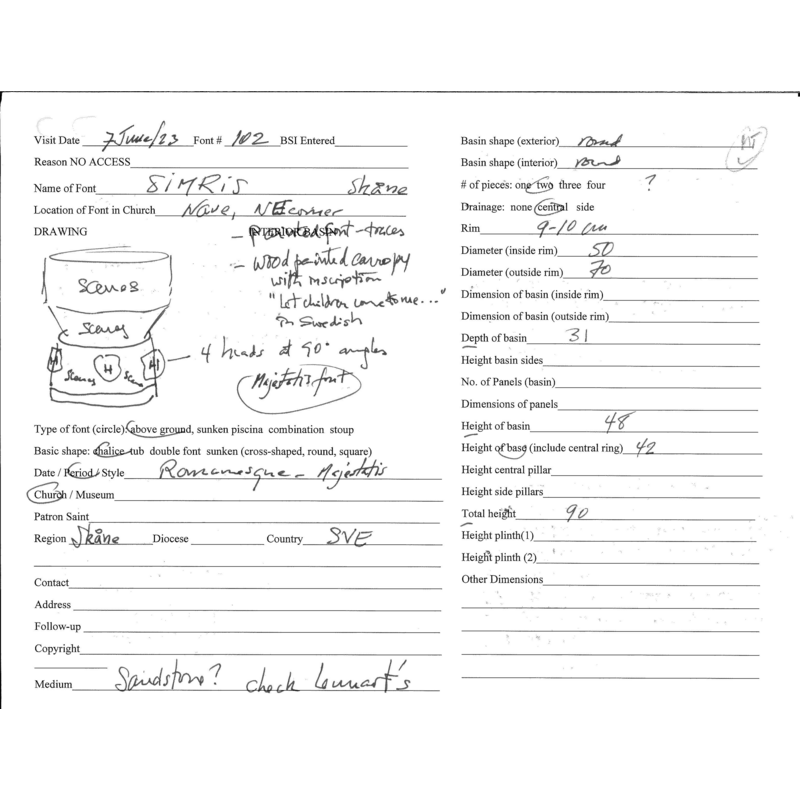 Visit Date 7 June/23 Font # 102 BSI Entered
Reason NO ACCESS
Name of Font SIMRIS Skåne
Location of Font in Church Nave, NE corner
DRAWING INTERIOR BASIN
- painted font - traces
- wood painted canopy
with inscription
"Let children come to me..."
in Swedish
Scenes
Scenes
H H H
Scenes Scenes
4 heads at 90° angles
Majestatis font
Type of font (circle): above ground, sunken piscina combination stoup
Basic shape: chalice tub double font sunken (cross-shaped, round, square)
Date / Period / Style Romanesque - Majestatis
Church / Museum
Patron Saint
Region Skåne Diocese Country SVE
Contact
Address
Follow-up
Copyright
Medium Sandstone? check Lennart's
Basin shape (exterior) round
Basin shape (interior) round
# of pieces: one two three four ?
Drainage: none central side
Rim 9-10 cm
Diameter (inside rim) 50
Diameter (outside rim) 70
Dimension of basin (inside rim)
Dimension of basin (outside rim)
Depth of basin 31
Height basin sides
No. of Panels (basin)
Dimensions of panels
Height of basin 48
Height of base (include central ring) 42
Height central pillar
Height side pillars
Total height 90
Height plinth(1)
Height plinth (2)
Other Dimensions